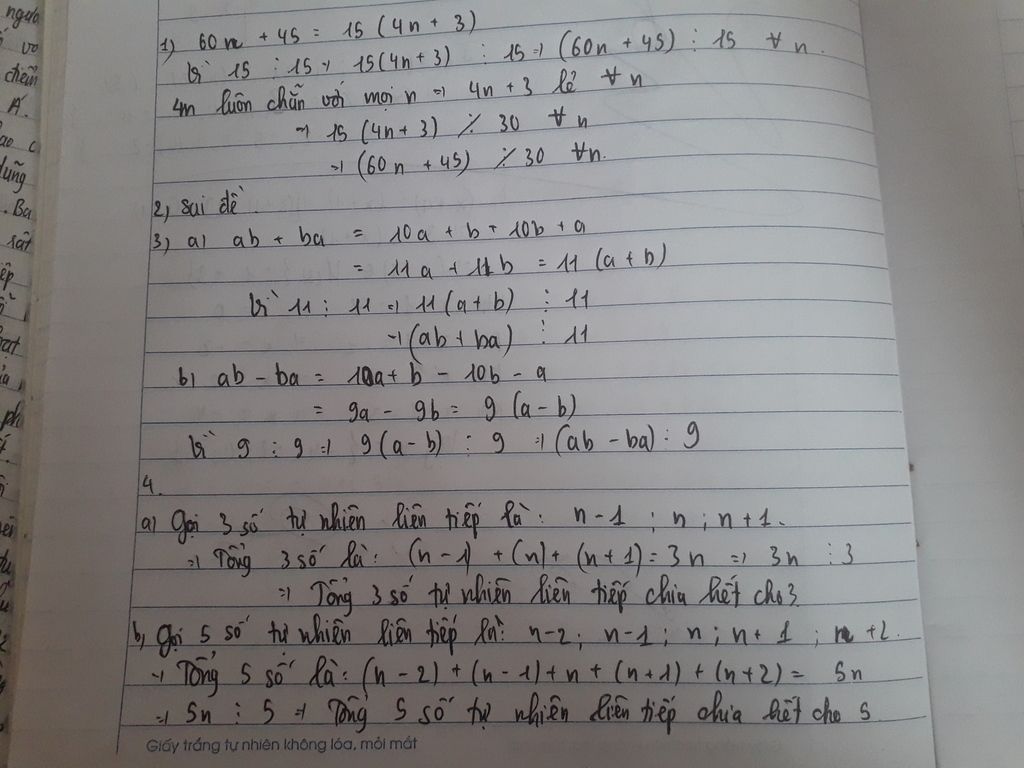 ngươ
vơ
điểm
A.
ao c
dũng
. Ba
sất
iếp
ạt
ph
1) 60n + 45 = 15 (4n + 3)
Vì 15 ⋮ 15 => 15(4n+3) ⋮ 15 => (60n + 45) ⋮ 15 ∀ n.
4n luôn chẵn với mọi n => 4n + 3 lẻ ∀ n
=> 15 (4n + 3) ⋮̸ 30 ∀ n
=> (60n + 45) ⋮̸ 30 ∀n.
2, sai đề
3) a) ab + ba = 10a + b + 10b + a
= 11a + 11b = 11 (a + b)
Vì 11 ⋮ 11 => 11(a+b) ⋮ 11
=> (ab + ba) ⋮ 11
b) ab - ba = 10a + b - 10b - a
= 9a - 9b = 9 (a - b)
Vì 9 ⋮ 9 => 9(a-b) ⋮ 9 => (ab - ba) ⋮ 9
4.
a) Gọi 3 số tự nhiên liên tiếp là: n-1 ; n ; n+1.
=> Tổng 3 số là: (n-1) + (n) + (n+1) = 3n => 3n ⋮ 3
=> Tổng 3 số tự nhiên liên tiếp chia hết cho 3.
b, Gọi 5 số tự nhiên liên tiếp là: n-2; n-1; n; n+1; n+2.
=> Tổng 5 số là: (n-2) + (n-1) + n + (n+1) + (n+2) = 5n
=> 5n ⋮ 5 => Tổng 5 số tự nhiên liên tiếp chia hết cho 5
Giấy trắng tự nhiên không lóa, mỏi mắt